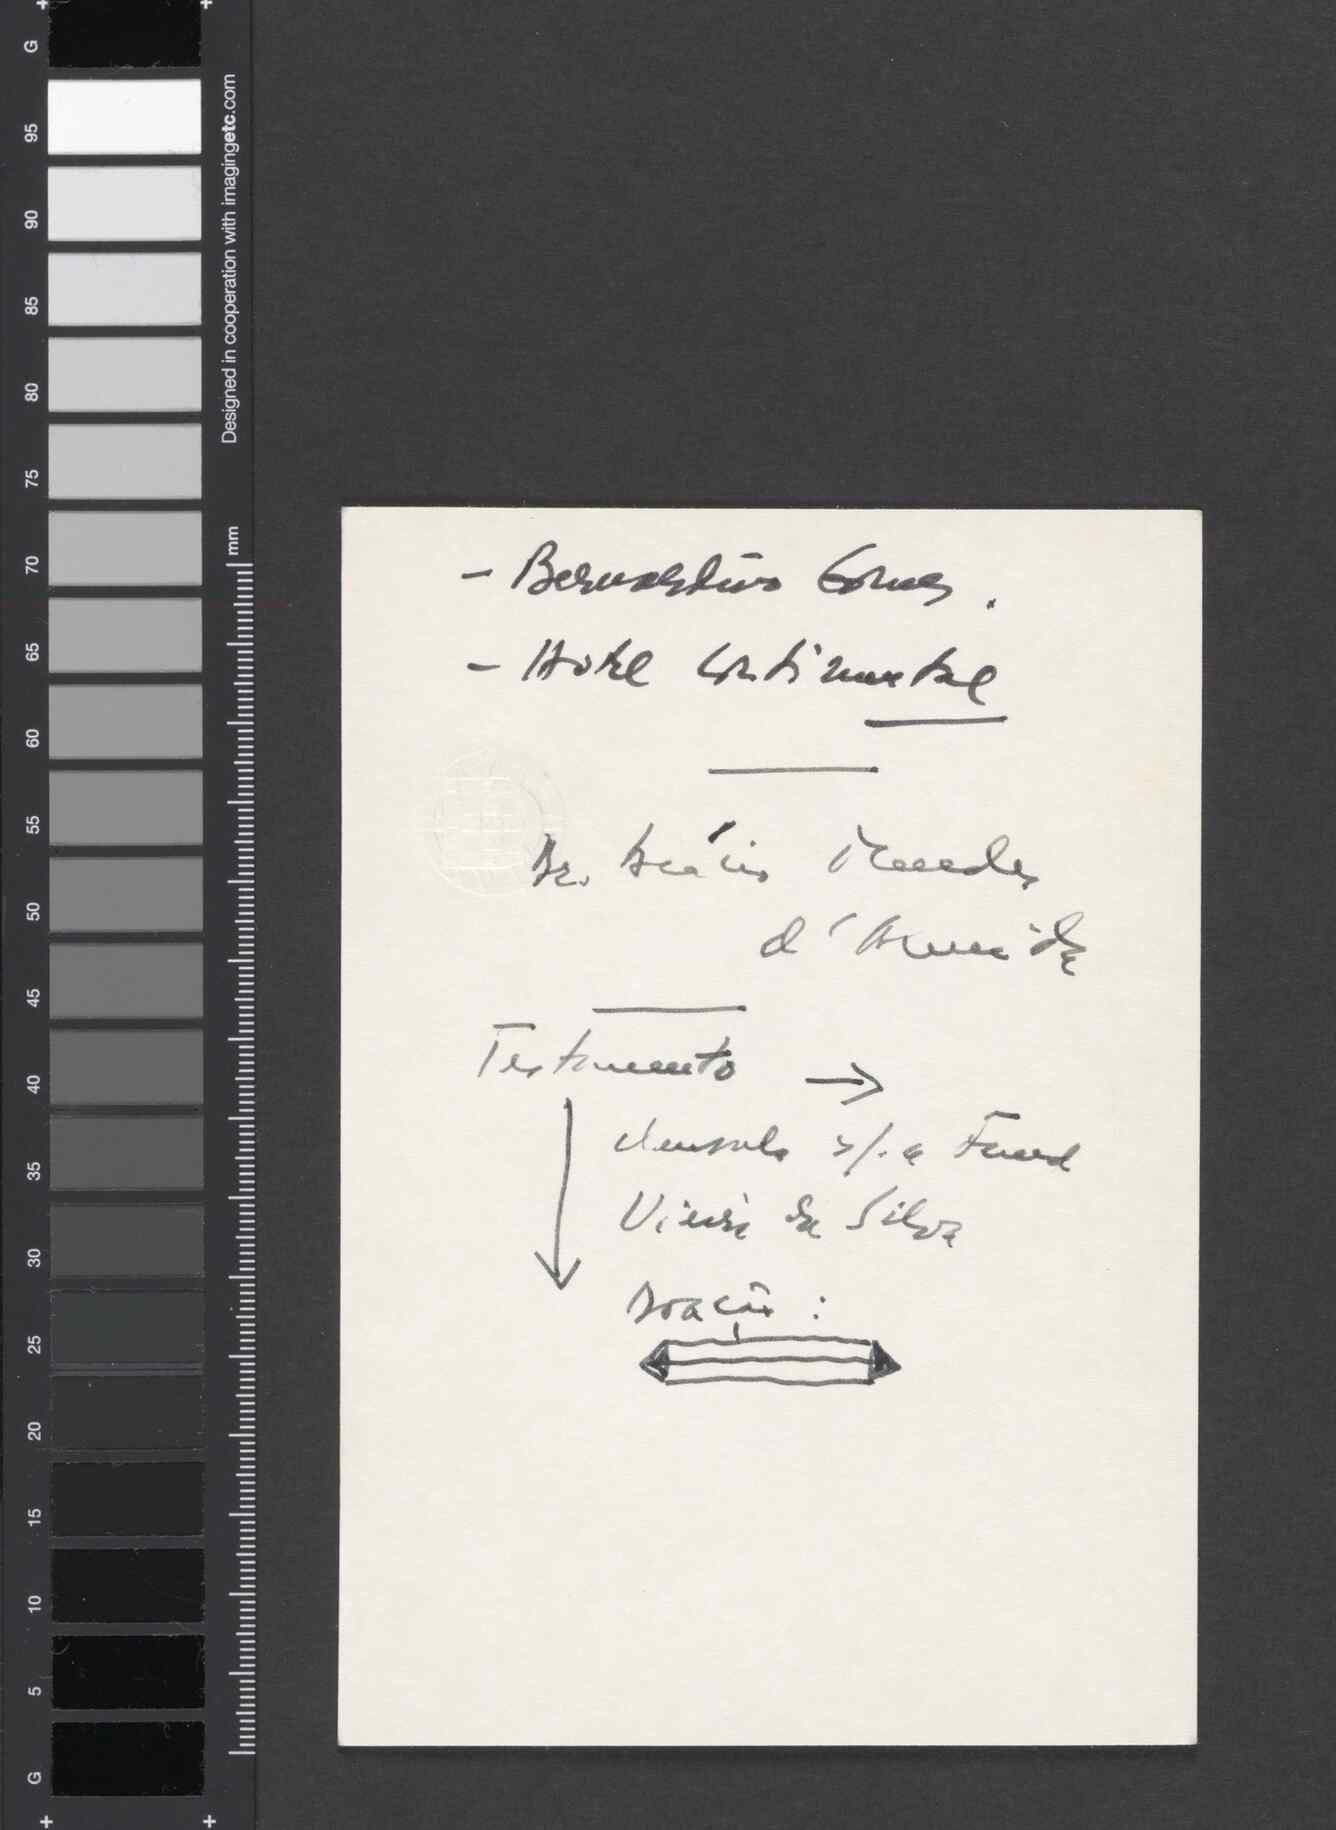 G
95
90
85
80
75
70
65
60
55
50
45
40
35
30
25
20
15
10
5
G
Designed in cooperation with imagingetc.com
mm
- Bernardino Gomes.
- Hotel Continental
Dr. Acácio
d'Almeida
Testamento →
s/. a Fund
Vieira da Silva
Doação :